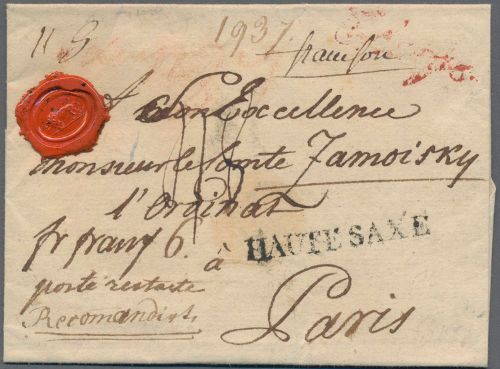 1937.
A Son Excellence
monsieur le Comte Zamoisky
l'Ordinat
fr franz 6.
à
HAUTE SAXE
poste restante
Recomandirt
Paris